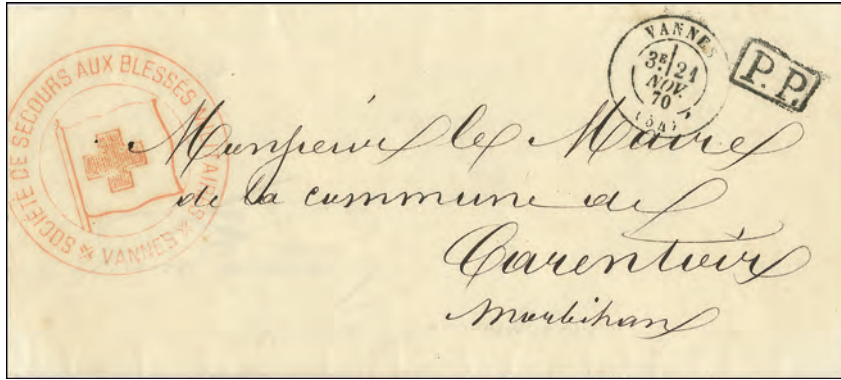 SOCIÉTÉ DE SECOURS AUX BLESSÉS MILITAIRES
VANNES
VANNES
3E 21
NOV.
70
(54)
P.P.
Monsieur le Maire
de la commune de
Carentoir
Morbihan